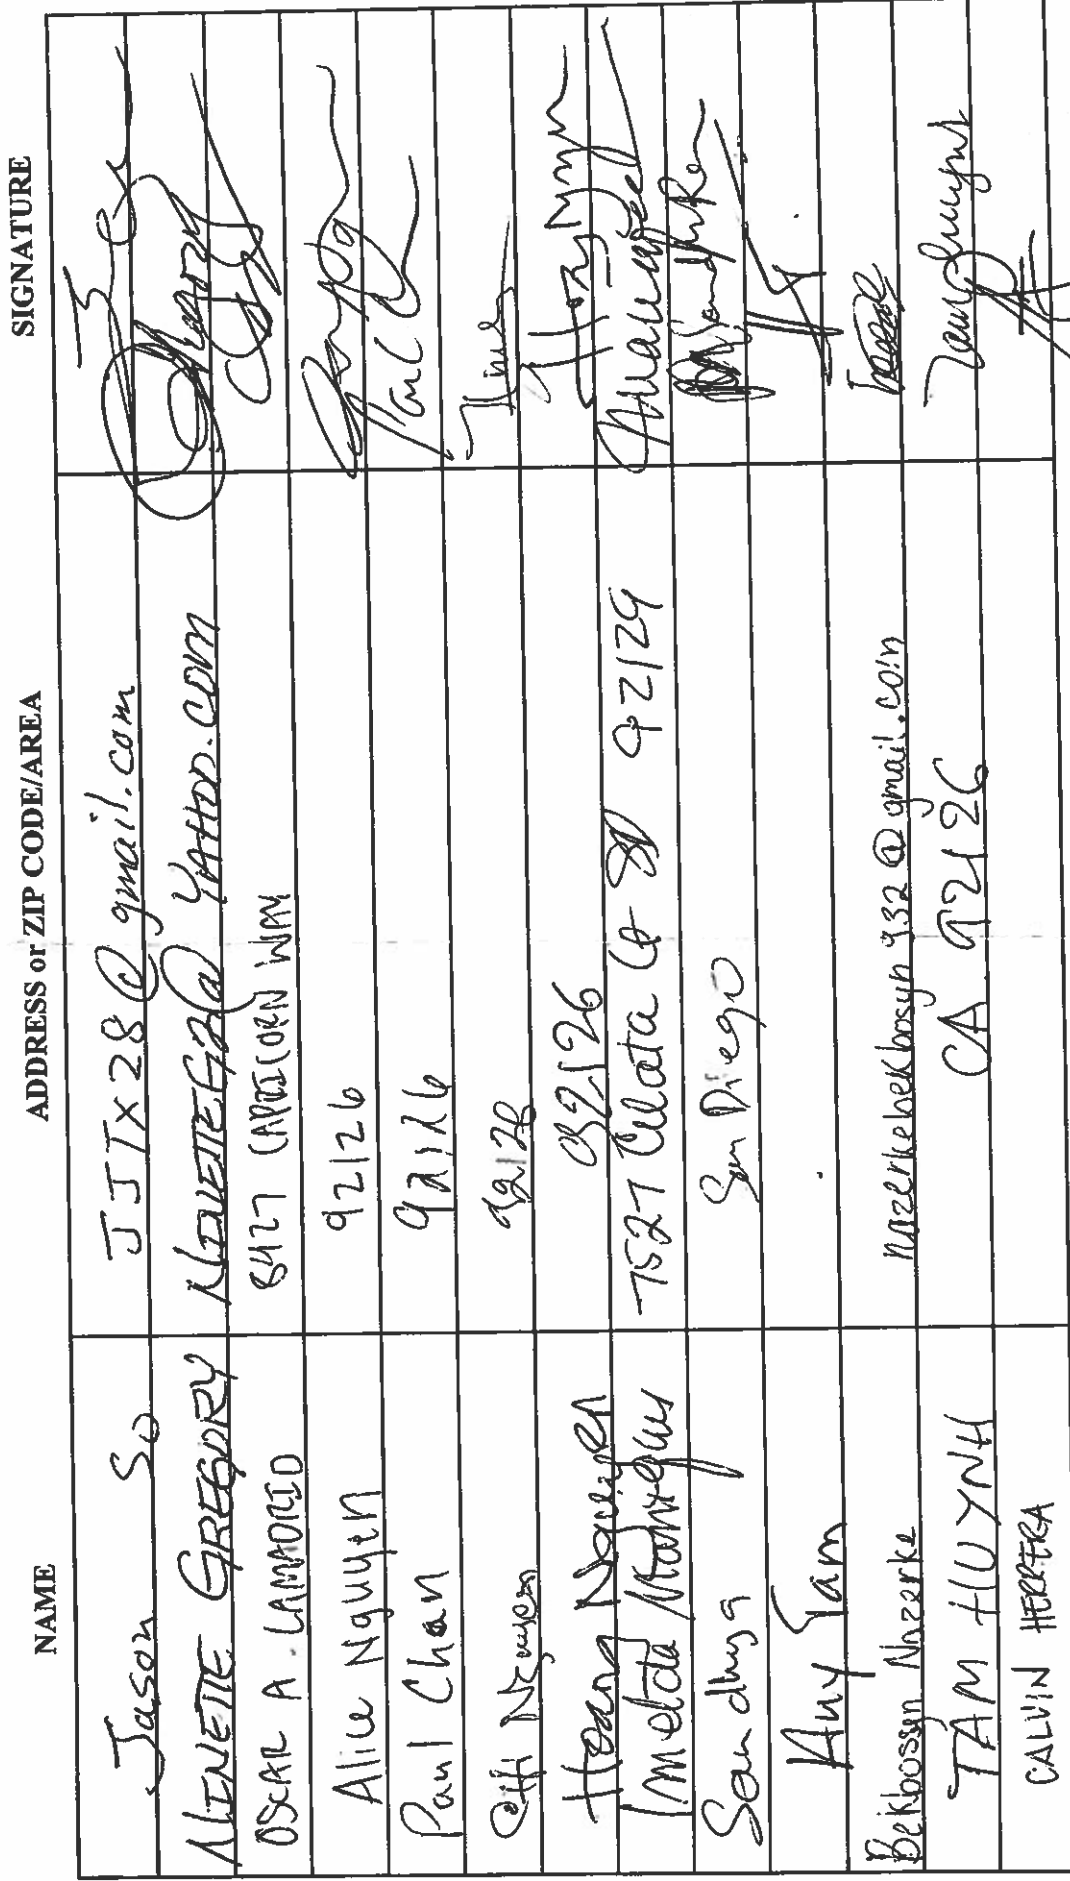 NAME ADDRESS or ZIP CODE/AREA SIGNATURE
Jason So JJTX28@gmail.com
NINETTE GREGORY NINETTEG2@YAHOO.COM
OSCAR A. LAMADRID 8427 CAPRICORN WAY
Alice Nguyen 92126
Paul Chan 92126 Paul C
Nguyen 92126
Hoang Nguyen 92126 Hoang Ngyn
Imelda Manrequs 7527 Celata Ct SD 92129
Sandhya San Diego
Amy Tam
Bekbossyn Nazerke nazerkebekbosyn932@gmail.com
TAM HUYNH CA 92126 Tamhuynh
CALVIN HERRERA